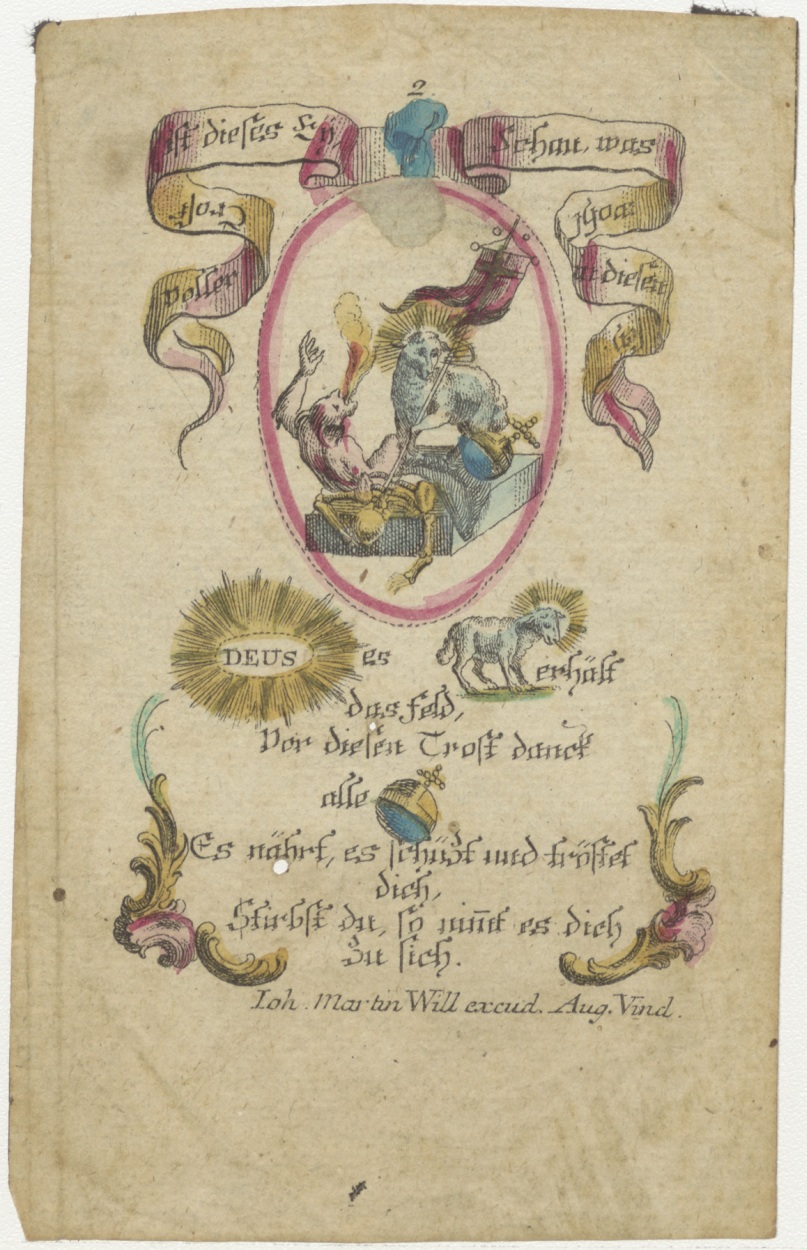 2
ist dieses Ey,
Trost
voller
Schau, was
wohl
in diesen
DEUS es erhält
das Feld,
Vor diesen Trost danck
alle
Es nährt, es schüzt und tröstet
dich,
Stirbst du, so nim̄t es dich
Zu sich.
Ioh. Martin Will excud. Aug. Vind.